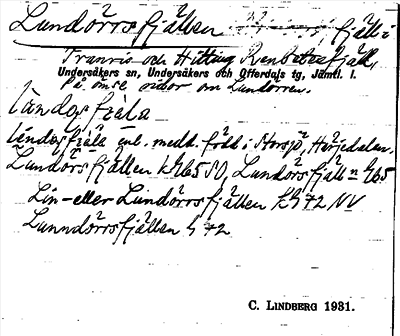 Lundörrsfjällen fjäll i
Tranris och Hotting Renbetesfjäll,
Undersåkers sn, Undersåkers och Offerdals tg, Jämtl. l.
På ömse sidor om Lundörren.
lándasfiäla
lándasfiäla enl. medd. född i Storsjö, Härjedalen.
Lundörsfjällen kG65SO, Lundörsfjälln G65
Lin- eller Lundörrsfjällen kG72 NV
Lunndörrsfjällen G72
C. LINDBERG 1931.